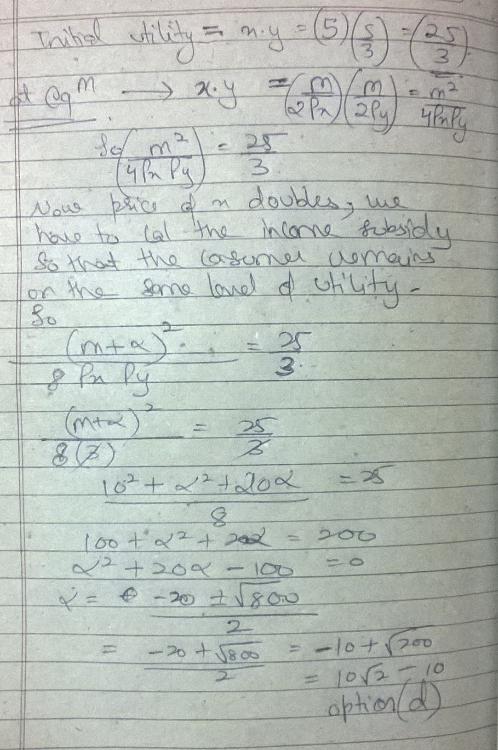 Initial utility = x.y = (5)(5/3) = (25/3)
at eq^m → x.y = (m/2Px)(m/2Py) = m²/4PxPy
So (m²/4PxPy) = 25/3
Now price of x doubles, we
have to cal the income subsidy
so that the consumer remains
on the same level of utility.
So
(m+α)²/8 Px Py = 25/3.
(m+α)²/8(3) = 25/3
10² + α² + 20α/8 = 25
100 + α² + 20α = 200
α² + 20α - 100 = 0
α = -20 ± √800/2
= -20 + √800/2 = -10 + √200
= 10√2 - 10
option (d)